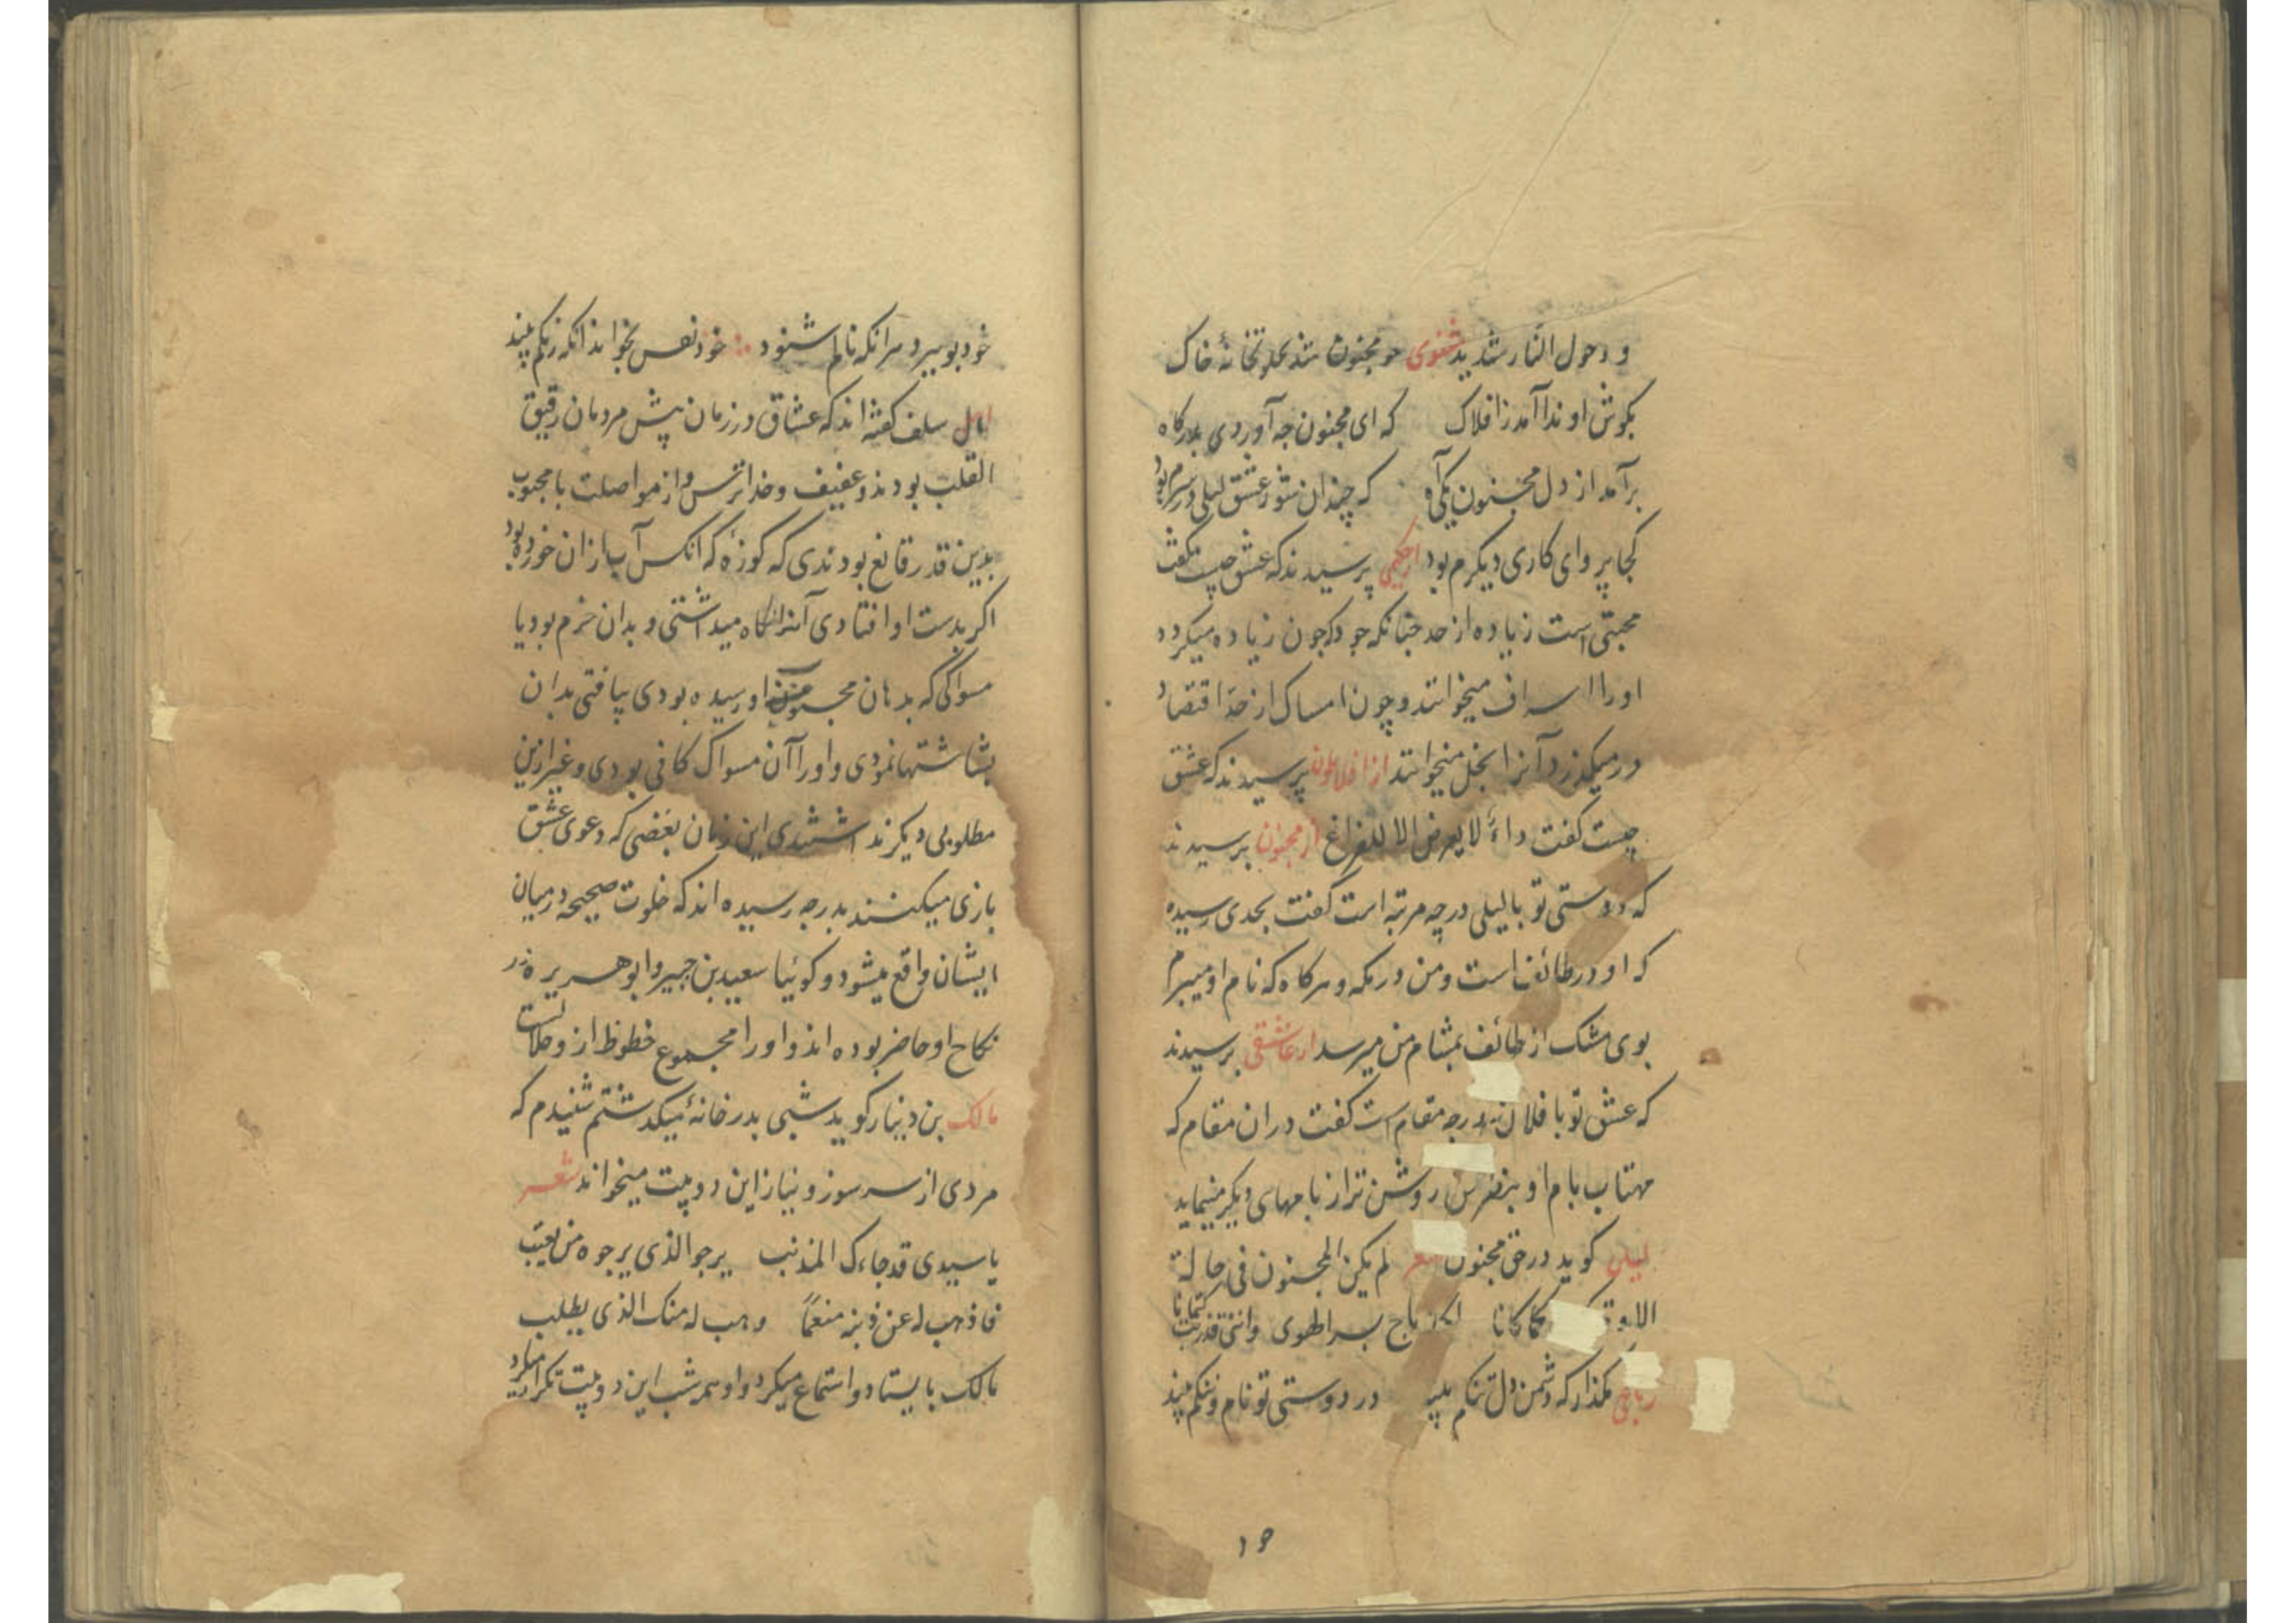 و دخول النار شدید مثنوی چو مجنون شد بخلوتخانهٔ خاک
بکوش او ندا آمد ز افلاک که ای مجنون چه آوردی بدرکاه
برآمد از دل مجنون یکی آه که چندان شور عشق لیلی در سرم بود
کجا پروای کاری دیکرم بود از حکیمی پرسیدند که عشق چیست گفت
محبتی است زیاده از حد چنانکه جود که چون زیاده میکردد
او را اسراف میخوانند و چون امساک از حد اقتضاد
درمیکذرد آنرا بخل میخوانند از افلاطون پرسیدند که عشق
چیست کفت داءٌ لا یعرض الا للفراغ از مجنون پرسیدند
که دوستی تو با لیلی در چه مرتبه است کفت بحدی رسیده
که او در طائف است و من در مکه و هرکاه که نام او میبرم
بوی مشک از طائف بمشام من میرسد از عاشقی پرسیدند
که عشق تو با فلان در چه مقام است کفت در ان مقام که
مهتاب بام او بنظر من روشن تر از بامهای دیکر مینماید
لیلی کوید در حق مجنون شعر لم یکن المجنون فی حالة
الا و کما کانا لکن باح بسر الهوی واننی قد ذبت کتمانا
رباعی مکذار که دشمن دل تنکم بیند در دوستی تو نام و ننکم بیند
خود بو میرد هر انکه نالم شنود خود نفس نخواند انکه رنکم بیند
اهل سلف کفته اند که عشاق در زمان پیش مردمان رقیق
القلب بودند و عفیف و خداترس و از مواصلت با محبوب
بدین قدر قانع بودندی که کوزهٔ که انکس آب از ان خورده بود
اکر بدست او افتادی آنرا نکاه میداشتی و بدان خرم بود یا
مسواکی که بدهان محبوب او رسیده بودی بیافتی بدان
بشاشتها نمودی و او را آن مسواک کافی بودی و غیر ازین
مطلوبی دیکر نداشتندی این زمان بعضی که دعوی عشق
بازی میکنند بدرجه رسیده اند که خلوت صحیحه در میان
ایشان واقع میشود و کوئیا سعید بن جبیر و ابو هریره در
نکاح او حاضر بوده اند و او را مجموع خطوظ از و حلالست
مالک بن دینار کوید شبی بدر خانهٔ میکذشتم شنیدم که
مردی از سر سوز و نیاز این دو بیت میخواند شعر
یا سیدی قد جاءک المذنب یرجو الذی یرجوه من یعتب
فاذهب له عن ذنبه منعمًا وهب له منک الذی یطلب
مالک بایستاد و استماع میکرد و او همه شب این دو بیت تکرار میکرد